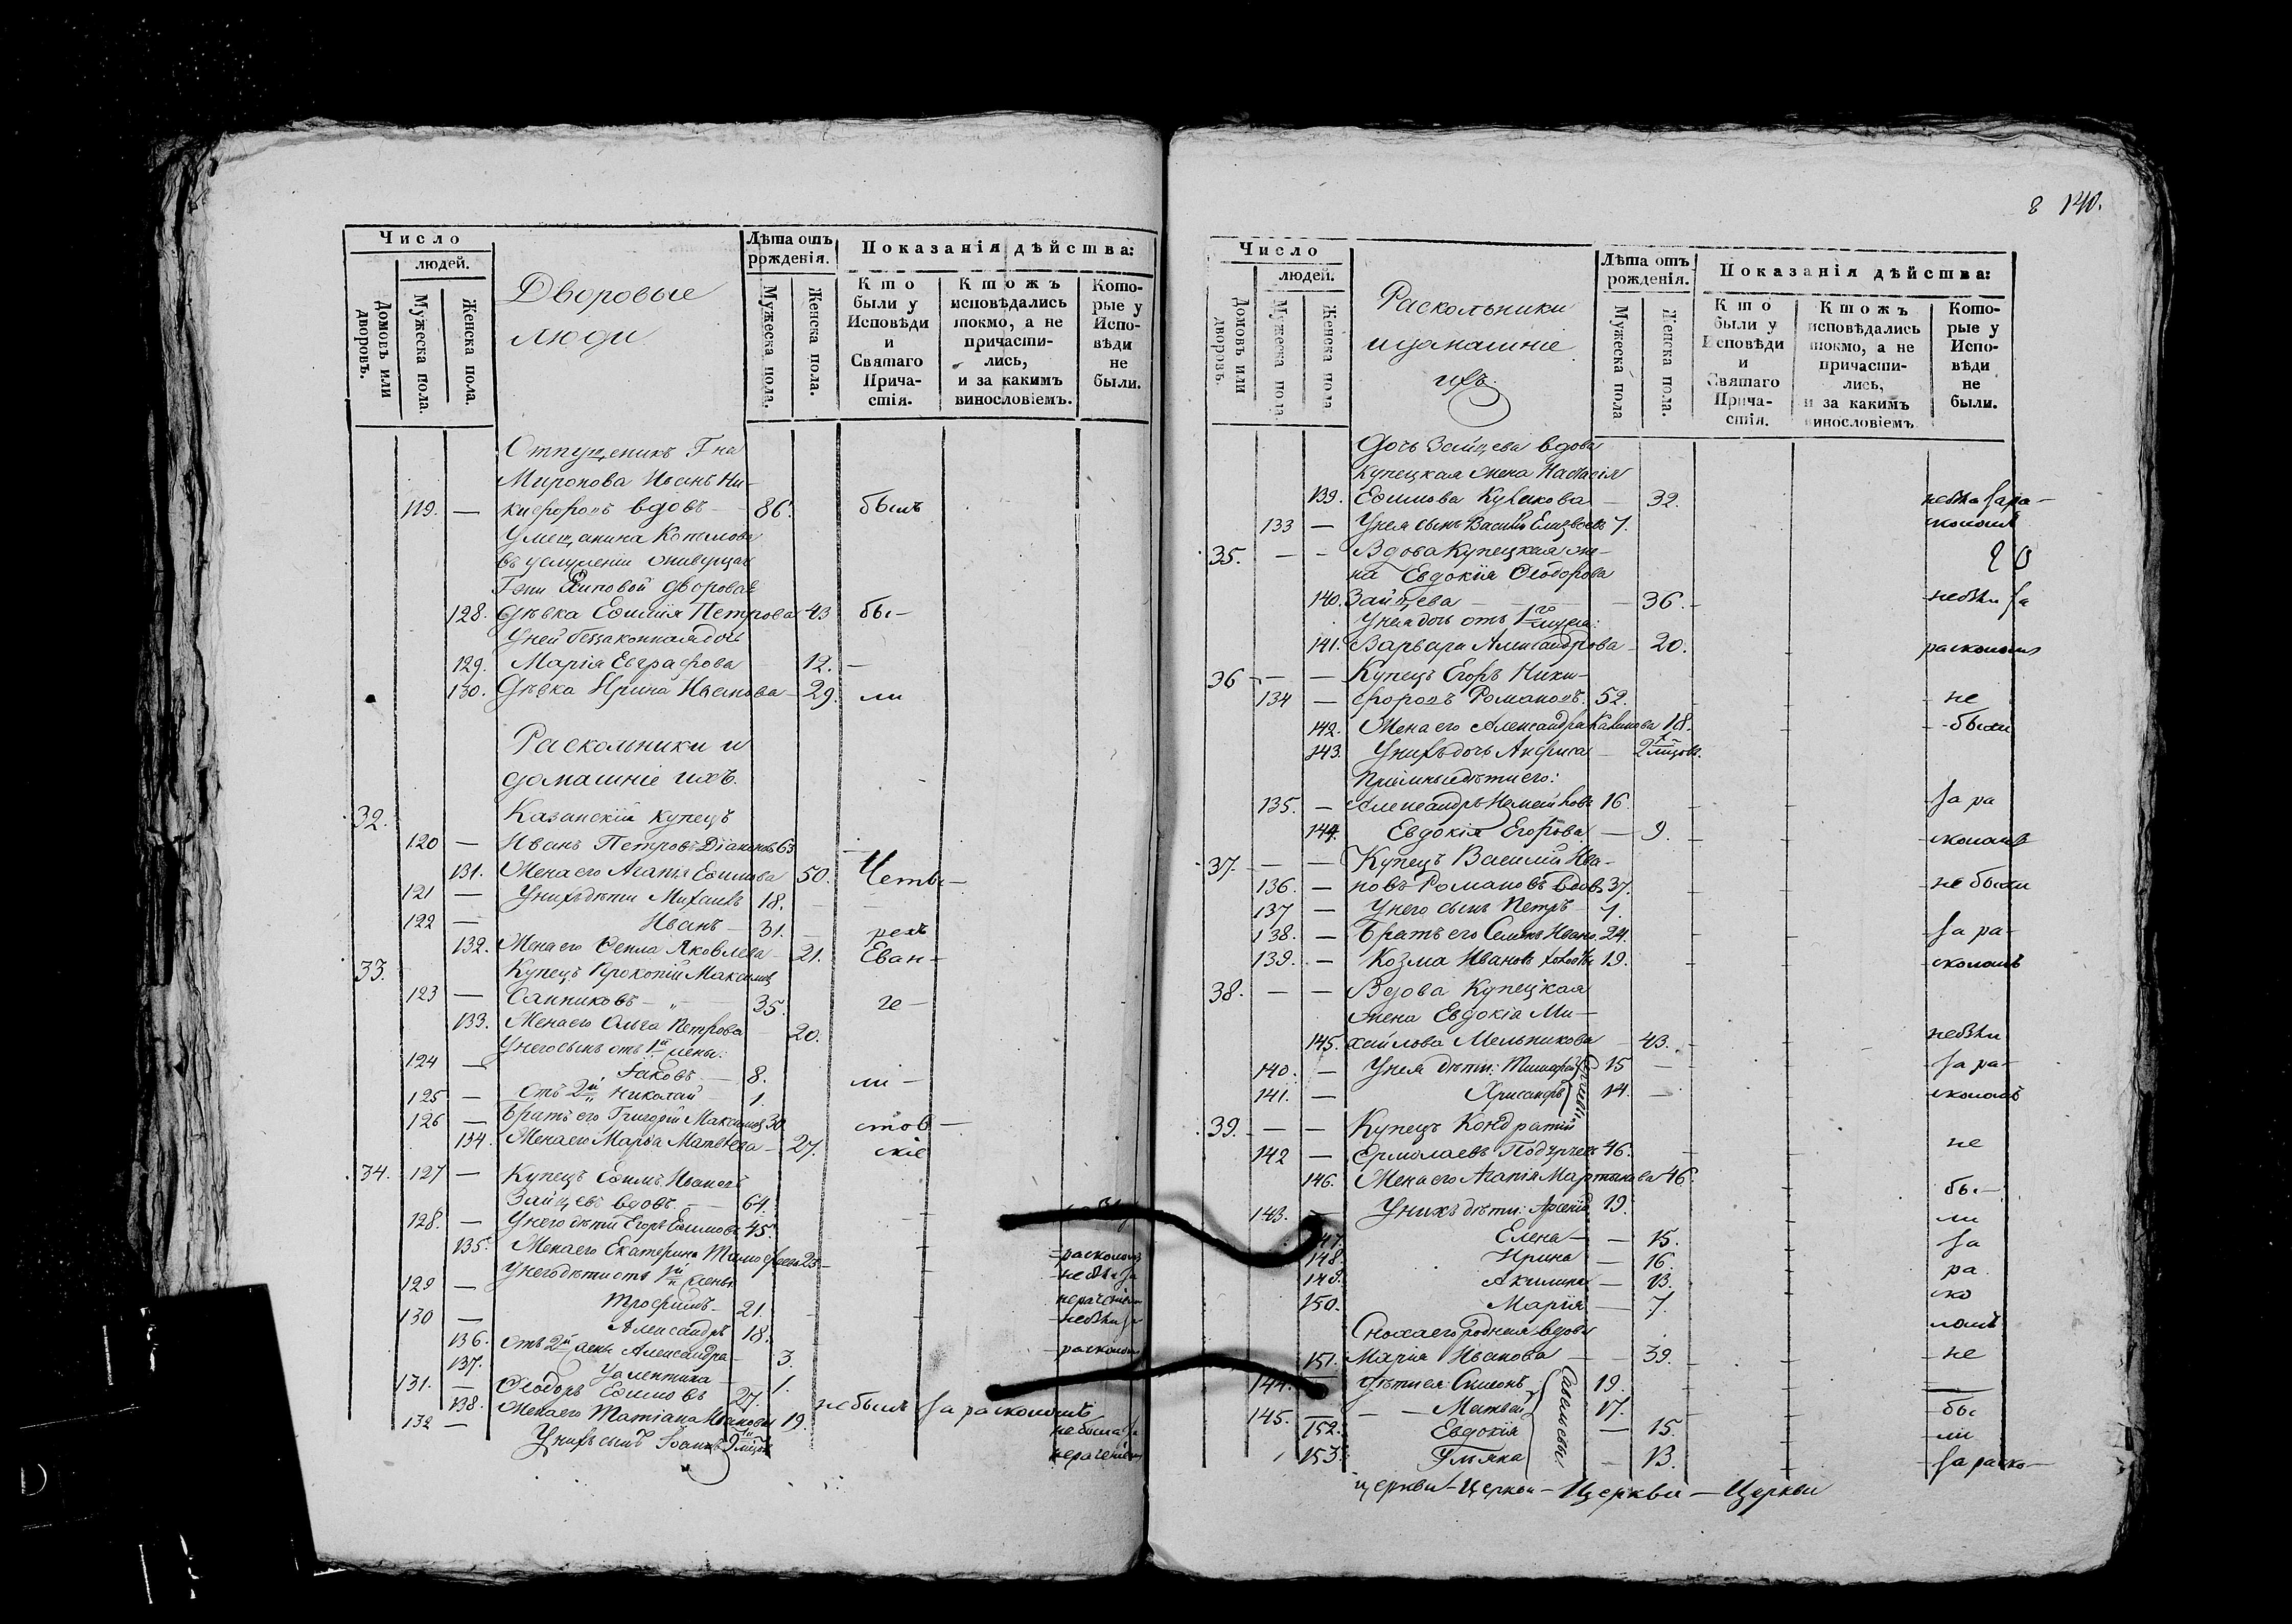 Число
людей.
Домовъ или дворовъ.
Мужеска пола.
Женска пола.
Дворовые
люди
Лѣта отъ рожденія.
Мужеска пола.
Женска пола.
Показанія дѣйства:
Кто были у Исповѣди и Святаго Прича-стія.
Ктожъ исповѣдались токмо, а не причасти-лись, и за какимъ винословіемъ.
Кото-рые у Испо-вѣди не были.
Отпущеникъ Гна
Миронова Иванъ Ни-
119. — кифоровъ вдовъ — 86. былъ
Умещанина Копылова
въ услуженіи
Гжи дворовая
128. дѣвка Евфимія Петрова 43 бы-
Уней беззаконная дочь
129. Марія Евграфова 12. —
130. Дѣвка Ирина Иванова — 29. ли
Раскольники и
домашніе ихъ.
32. Казанскій купецъ
120 — Иванъ Петровъ 63
131. Жена его Агапія Ефимова 50. Четы-
121 — Унихъ дѣти Михаилъ 18.
122 — Иванъ — 31. рехъ
132. Жена его Ѳекла Яковлева — 21. Еван-
33. Купецъ Прокопій Максимовъ
123 — Санниковъ — 35. ге-
133. Жена его Ольга Петрова 20.
Унего сынъ отъ 1й жены:
124 — Іаковъ — 8. ли-
125 — Отъ 2й Николай 1.
126 — Братъ его Григорій Максимовъ 30. стов-
134. Жена его Марья Матвѣева — 27. скіе
34. 127 — Купецъ Ефимъ Ивановъ
Зайцевъ вдовъ — 64.
128. — Унего дѣти Егоръ Ефимовъ 45.
135. Жена его Екатерина Тимофеева 25 — расколомъ
Унего дѣти отъ 1й жены
129 — Трофимъ — 21.
130 — Александръ 18.
136. Отъ 2й жены Александра — 3. расколомъ
137. Уалентина 1.
131. — Ѳеодоръ Ефимовъ 27. небылъ за расколомъ
138. Жена его Татіана Иванова 19.
132 — Унихъ сынъ Іоаннъ
8 140.
Число
людей.
Домовъ или дворовъ.
Мужеска пола
Женска пола
Раскольники
и домашніе
ихъ.
Лѣта отъ рожденія.
Мужеска пола
Женска пола.
Показанія дѣйства:
Кто были у Исповѣди и Святаго Прича-стія.
Ктожъ исповѣдались токмо, а не причасти-лись, и за какимъ винословіемъ
Кото-рые у Испо-вѣди не были.
Дочь Зайцева вдова
купецкая жена Настасія
139. Ефимова — 32.
133 — Унея сынъ Василій 7.
35. — — Вдова купецкая же-
на Евдокія Ѳеодорова
140. Зайцева — 36.
Унея дочь отъ 1го
141. Варвара Александрова — 20. расколомъ
36 — — Купецъ Егоръ Ники-
134 — форовъ Романовъ. 52. не
142. Жена его Александра 18. были
143. Унихъ дочь Анфиса — 2
Пріемные дѣти его:
135. — Александръ 16. за ра
144. Евдокія Егорова — 9. сколомъ
37. — — Купецъ Василій Ива-
136. — новъ Романовъ вдовъ 37. не были
137 — Унего сынъ Петръ 7.
138. — Братъ его Семенъ Ивано. 24. за ра-
139. — Козма Ивановъ 19. сколомъ
38. — — Вдова Купецкая
жена Евдокія Ми-
145. хайлова Мельникова — 43.
140. — Унея дѣти: Тимофей 15 за ра-
141. — Хрисанфъ 14. сколомъ
39. — — Купецъ Кондратій
142 — Ермолаевъ 46. не
146. Жена его Агапія Мартынова 46. бы-
143. — Унихъ дѣти: Арсеній 19. ли
147. Елена — 15. за
148. Ирина — 16. ра
149. Акилина — 13. ско
150. Марія — 7. ломъ
Сноха его родная вдова
151. Марія Иванова — 39. не
144. — дѣти ея: Симеонъ 19.
145. — Матвей 17. бы
152. Евдокія — 15. ли
153. Ульяна — 13. за раско-
церкви — Церкви — Церкви — Церкви